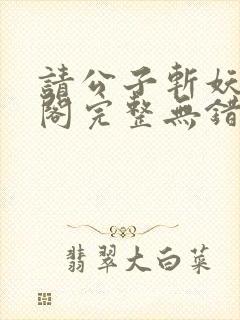 請公子斬妖
閣完整無錯
翡翠大白菜